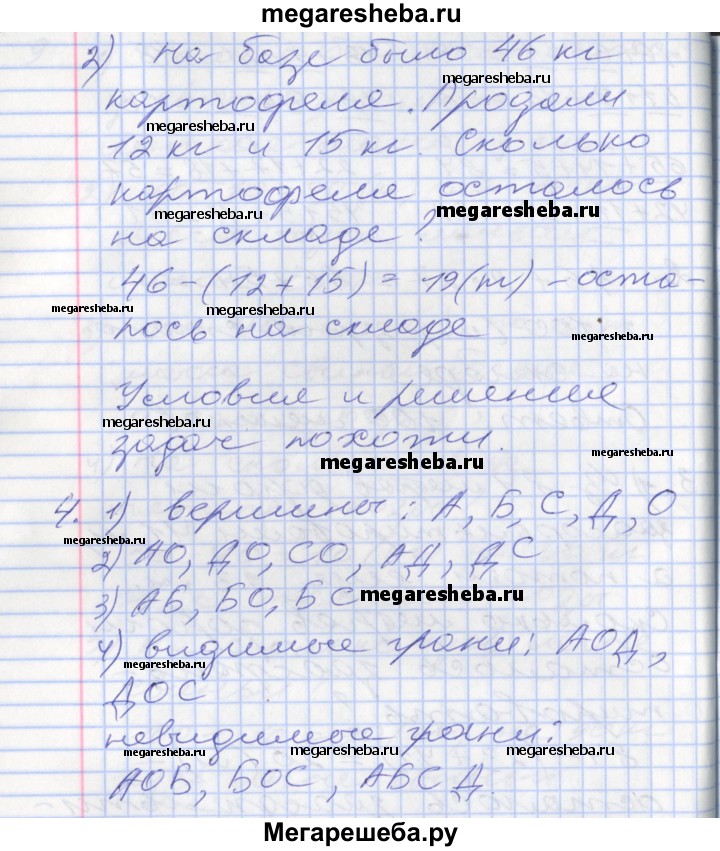 megaresheba.ru
2) На базе было 46 кг
megaresheba.ru
картофеля. Продали
megaresheba.ru
12 кг и 15 кг. Сколько
картофеля осталось
megaresheba.ru
на складе?
46-(12+15)=19(т) - оста-
megaresheba.ru
лось на складе
megaresheba.ru
Условие и решение
megaresheba.ru
задач похожи.
megaresheba.ru
4. 1) вершины: А, Б, С, Д, О
megaresheba.ru
2) АО, ДО, СО, АД, ДС
3) АБ, БО, БС
megaresheba.ru
4) видимые грани: АОД,
megaresheba.ru
ДОС
невидимые грани:
megaresheba.ru megaresheba.ru
АОБ, БОС, АБСД.
Мегарешеба.ру